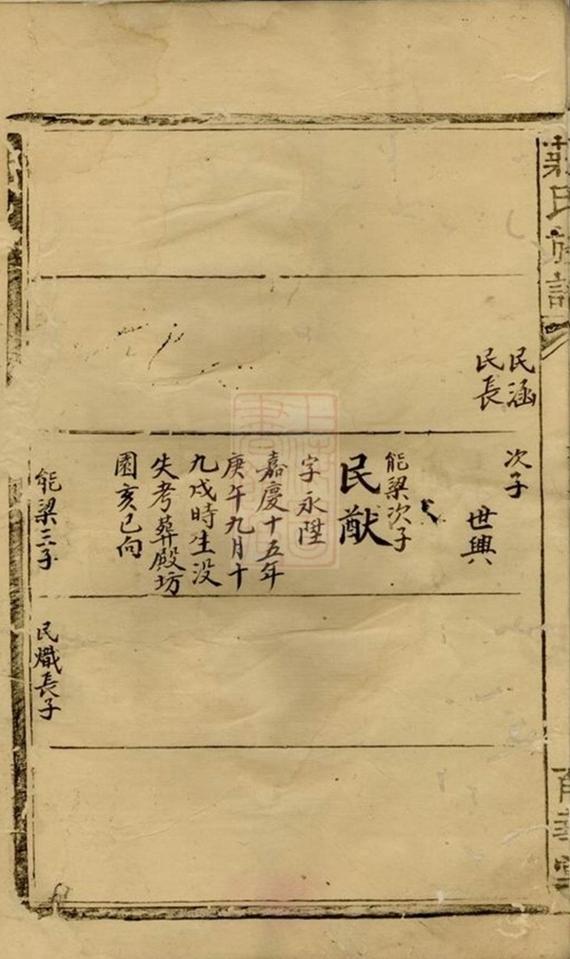 民涵
民長
次子
世興
能梁次子
民猷
字永陞
嘉慶十五年
庚午九月十
九戌時生没
失考葬殿坊
園亥巳向
能梁三子
民熾長子
氏族譜